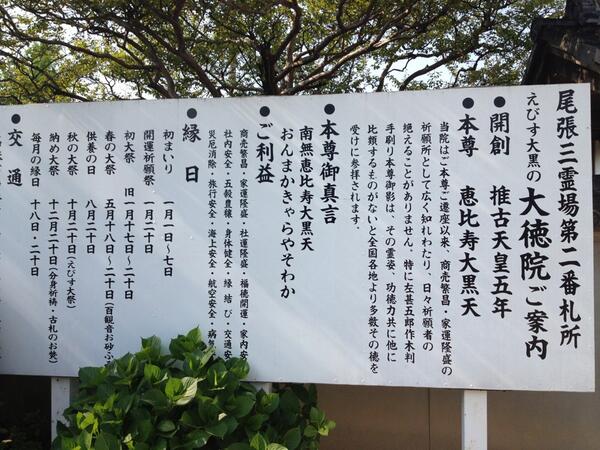 尾張三霊場第二番札所
えびす大黒の大徳院ご案内
●開創 推古天皇五年
●本尊 恵比寿大黒天
当院はご本尊ご遷座以来、商売繁昌・家運隆盛の
祈願所として広く知れわたり、日々祈願者の
絶えることがありません。特に左甚五郎作木判
手刷り本尊御影は、その霊姿、功徳力共に他に
比類するものがないと全国各地より多数その徳を
受けに参拝されます。
●本尊御真言
南無恵比寿大黒天
おんまかきゃらやそわか
●ご利益
商売繁昌・家運隆盛・社運隆盛・福徳開運・家内安
社内安全・五穀豊穣・身体健全・縁結び・交通安
災厄消除・旅行安全・海上安全・航空安全・病
●縁日
初まいり 一月一日〜七日
開運祈願祭 一月二十日
初大祭 旧一月十七日〜二十日
春の大祭 五月十八日〜二十日(百観音お砂ふ
供養の日 八月二十日
秋の大祭 十月二十日(えびす大祭)
納め大祭 十二月二十日(分身祈祷・古札のお焚
毎月の縁日 十八日・二十日
●交通